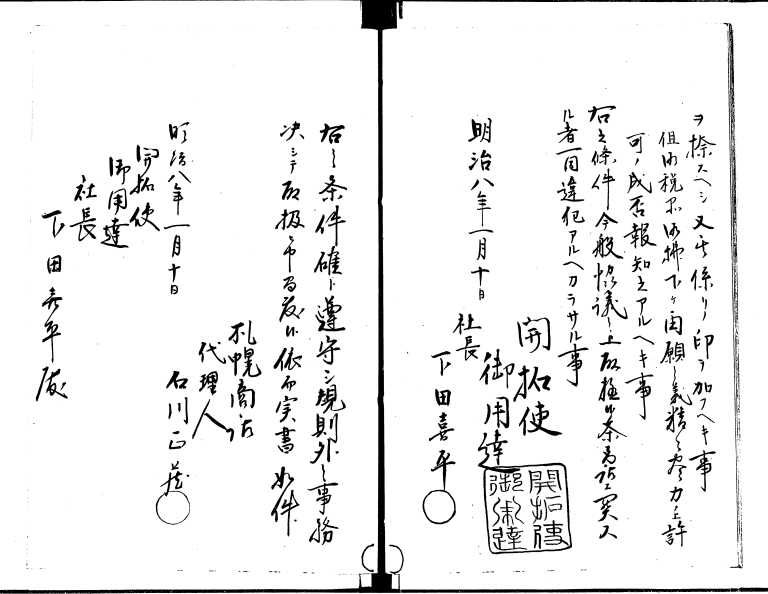 ヲ捺スヘシ又其係リノ印ヲ加フヘキ事
但納税并拂下ケ困願之義精々尽力之許
可ノ成否報知之アルヘキ事
右之條件今般協議之上取極候条為証
ル者一同違犯アルヘカラサル事
明治八年一月十日
開拓使
御用達
社長
下田喜平
開拓使御用達
右之条件確ト遵守シ規則外之事務
決シテ取扱申間敷候依而実書如件
札幌商社
代理人
石川正蔵
明治八年一月十日
開拓使
御用達
社長
下田喜平殿